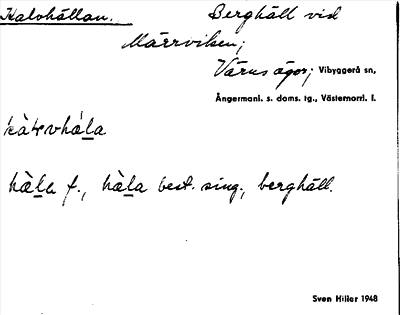 Kalvhällan. Berghäll vid
Märrviken;
Värns ägor; Vibyggerå sn,
Ångermanl. s. doms. tg., Västernorrl. l.
hàla f., hàla best. sing., berghäll.
Sven Hiller 1948